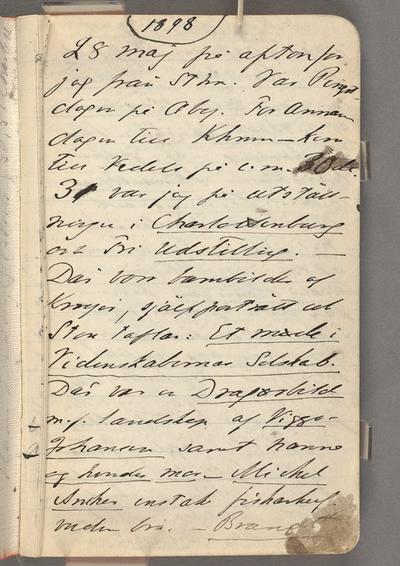 1898
28 maj på aftonen for
jag från Sthm. Var Pingst-
dagen på Åby. For Annan
dagen till Khmn – kom
till Vedels på e.m. 30de.
31 var jag på utställ-
ningen i Charlottenburg
och Fri Udstilling. –
Där voro barnbilder af
Kröyer, självporträtt och
Stora taflan: Et møde i
Videnskabernas Selskab.
Där var en Dragørbild
m.fl. landskap af Viggo
Johansen samt hanne
og hendes mor – Michel
Ancher enstak fiskarhuf
vuden bra. – Brandt